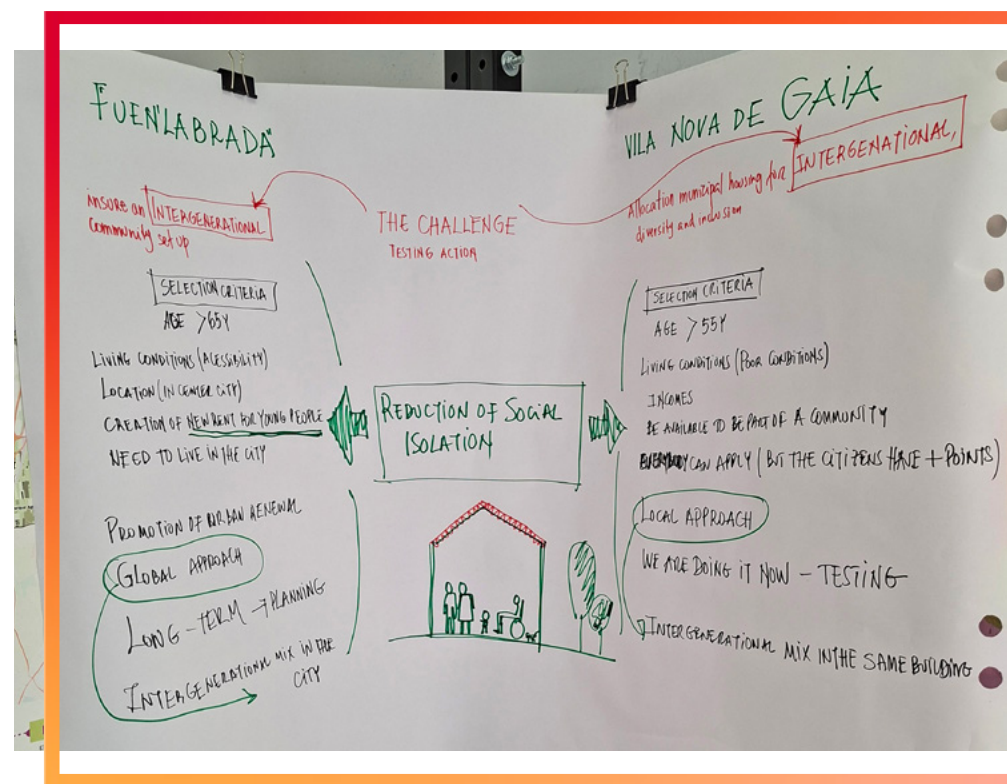 FUENLABRADA
insure an INTERGENERATIONAL
community set up
SELECTION CRITERIA
AGE >65Y
LIVING CONDITIONS (ACESSIBILITY)
LOCATION (IN CENTER CITY)
CREATION OF NEW RENT FOR YOUNG PEOPLE
NEED TO LIVE IN THE CITY
PROMOTION OF URBAN RENEWAL
GLOBAL APPROACH
LONG-TERM → PLANNING
INTERGENERATIONAL MIX IN THE
CITY
THE CHALLENGE
TESTING ACTION
REDUCTION OF SOCIAL
ISOLATION
VILA NOVA DE GAIA
Allocation municipal housing for INTERGENATIONAL,
diversity and inclusion
SELECTION CRITERIA
AGE >55Y
LIVING CONDITIONS (POOR CONDITIONS)
INCOMES
BE AVAILABLE TO BE PART OF A COMMUNITY
EVERYBODY CAN APPLY (BUT THE CITIZENS HAVE + POINTS)
LOCAL APPROACH
WE ARE DOING IT NOW – TESTING
INTERGENERATIONAL MIX IN THE SAME BUILDING